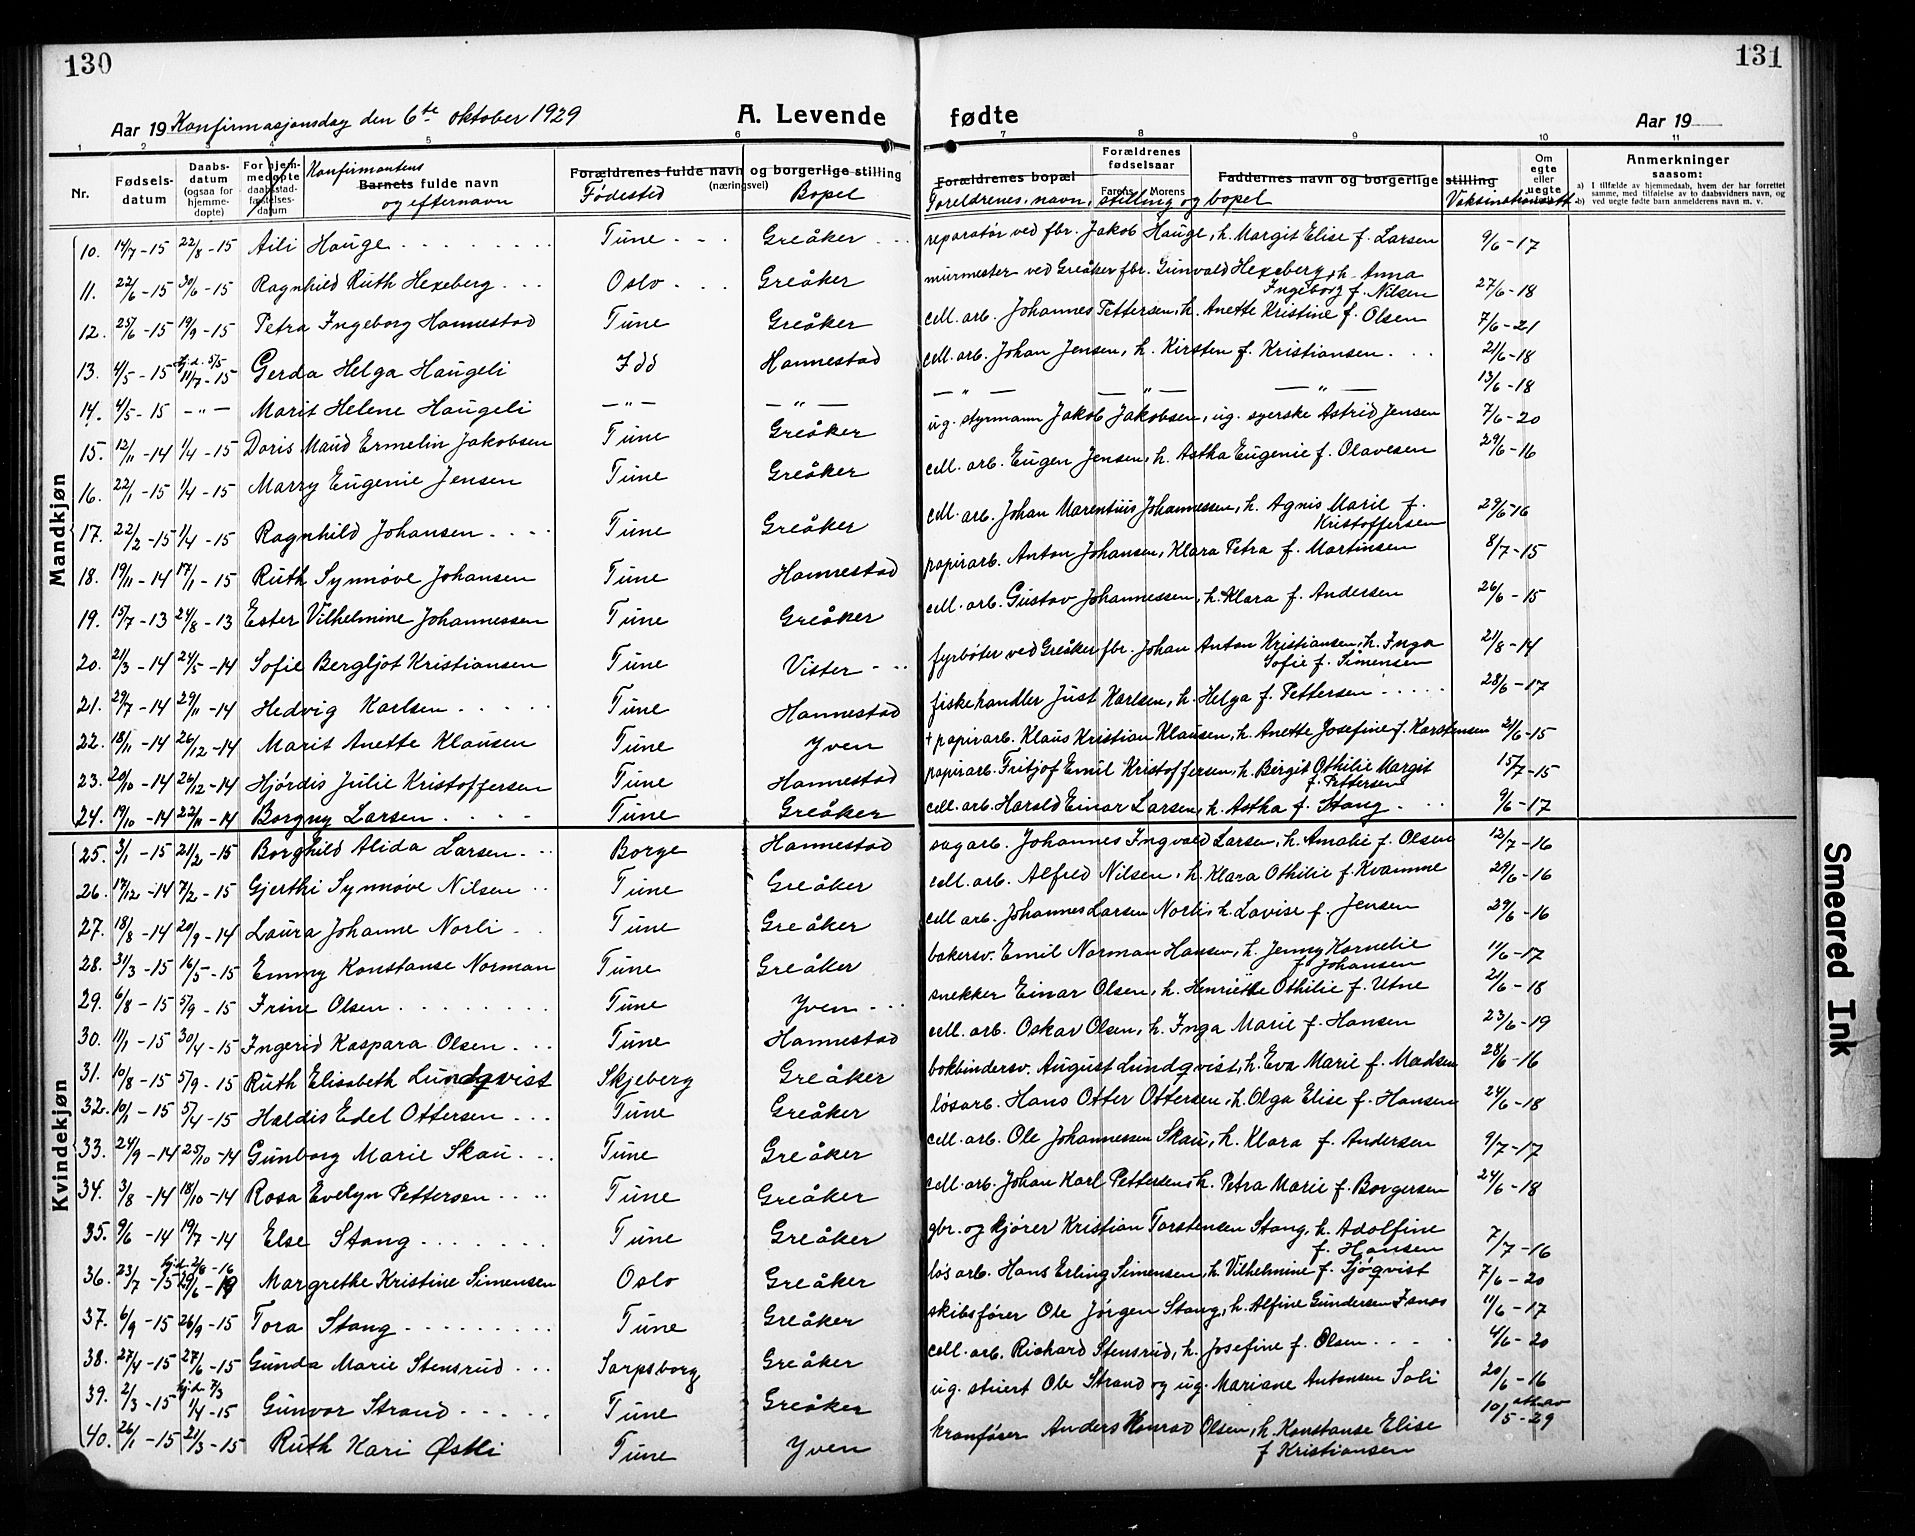 130
131
Aar 19 Konfirmasjonsdag den 6te oktober 1929
A. Levende fødte
Aar 19
1 2 3 4 5 6 7 8 9 10 11
Nr.
Fødsels-datum
Daabs-datum (ogsaa for hjemme-døpte)
For hjem-medøpte daabsstad-fæstelses-datum
Konfirmantens
Barnets fulde navn
og efternavn
Forældrenes fulde navn og borgerlige stilling
(næringsvei)
Fødested
Bopel
Forældrenes bopæl
Forældrenes fødselsaar
Farens Morens
Faddernes navn og borgerlige stilling
Foreldrenes navn, stilling og bopel
Om egte eller uegte
Vaksinationsatt.
Anmerkninger saasom:
a) I tilfælde av hjemmedaab, hvem der har forrettet
b) samme, med tilføielse av to daabsvidners navn, og
ved uegte fødte barn anmelderens navn m. v.
Mandkjøn
10. 14/7-15 22/8-15 Aili Hauge Tune Greåker reparatør ved fbr. Jakob Hauge, h. Margit Elise f. Larsen 9/6-17
11. 22/6-15 30/6-15 Ragnhild Ruth Hexeberg Oslo Greåker murmester ved Greåker fbr. Gunvald Hexeberg, h. Anna
Ingeborg f. Nilsen 27/6-18
12. 25/6-15 19/9-15 Petra Ingeborg Hannestad Tune Greåker cell. arb. Johannes Pettersen, h. Anette Kristine f. Olsen 7/6-21
13. 4/5-15 hj.d. 5/5 11/7-15 Gerda Helga Haugeli Idd Hannestad cell. arb. Johan Jensen, h. Kirsten f. Kristiansen 21/6-18
14. 4/5-15 -"- Marit Helene Haugeli -"- -"- -"- -"- -"- 13/6-18
15. 12/11-14 1/4-15 Doris Maud Ermelin Jakobsen Tune Greåker ug. styrmann Jakob Jakobsen, ug. syerske Astrid Jensen 7/6-20
16. 22/1-15 1/4-15 Marry Eugenie Jensen Tune Greåker cell. arb. Eugen Jensen, h. Astha Eugenie f. Olavesen 29/6-16
17. 22/2-15 1/4-15 Ragnhild Johansen Tune Greåker cell. arb. Johan Marentius Johannessen, h. Agnis Marie f.
Kristoffersen 29/6-16
18. 19/11-14 17/1-15 Ruth Synnøve Johansen Tune Hannestad papirarb. Anton Johansen, Klara Petra f. Martinsen 8/7-15
19. 15/7-13 24/8-13 Ester Vilhelmine Johannessen Tune Greåker cell. arb. Gustav Johannessen, h. Klara f. Andersen 26/6-15
20. 21/3-14 24/5-14 Sofie Bergljot Kristiansen Tune Vister fyrbøter ved Greåker fbr. Johan Anton Kristiansen, h. Inga
Sofie f. Simensen 21/8-14
21. 29/7-14 29/11-14 Hedvig Karlsen Tune Hannestad fiskehandler Just Karlsen, h. Helga f. Pettersen 28/6-17
22. 18/11-14 26/12-14 Marit Anette Klausen Tune Yven + papirarb. Klaus Kristian Klausen, h. Anette Josefine f. Karstensen 21/6-15
23. 20/10-14 26/12-14 Hjørdis Julie Kristoffersen Tune Hannestad papirarb. Fritjof Emil Kristoffersen, h. Birgit Othilie Margit
f. Pettersen 15/7-15
24. 19/10-14 22/11-14 Borgny Larsen Tune Greåker cell. arb. Harald Einar Larsen, h. Astha f. Stang 9/6-17
Kvindekjøn
25. 3/1-15 21/2-15 Borghild Alida Larsen Borge Hannestad sagarb. Johannes Ingvald Larsen, h. Amalie f. Olsen 12/7-16
26. 17/12-14 7/2-15 Gjerthi Synnøve Nilsen Tune Greåker cell. arb. Alfred Nilsen, h. Klara Othilie f. Kvamme 29/6-16
27. 18/8-14 20/9-14 Laura Johanne Norli Tune Greåker cell arb. Johannes Larsen Norli, h. Lovise f. Jensen 29/6-16
28. 31/3-15 16/5-15 Emmy Konstanse Norman Tune Greåker bakersv. Emil Norman Hansen, h. Jenny Kornelie
f. Johansen 11/6-17
29. 6/8-15 5/9-15 Irine Olsen Tune Yven snekker Einar Olsen, h. Henriette Othilie f. Utne 21/6-18
30. 11/1-15 30/4-15 Ingerid Kaspara Olsen Tune Hannestad cell. arb. Oskar Olsen, h. Inga Marie f. Hansen 23/6-19
31. 10/8-15 5/9-15 Ruth Elisabeth Lundqvist Skjeberg Greåker bokbindersv. August Lundqvist, h. Eva Marie f. Madsen 28/6-16
32. 10/1-15 5/4-15 Haldis Edel Ottersen Tune Greåker løsarb. Hans Otter Ottersen, h. Olga Elise f. Hansen 24/6-18
33. 24/9-14 25/10-14 Gunborg Marie Skau Tune Greåker cell. arb. Ole Johannessen Skau, h. Klara f. Andersen 9/7-17
34. 3/8-14 18/10-14 Rosa Evelyn Pettersen Tune Greåker cell. arb. Johan Karl Pettersen, h. Petra Marie f. Borgersen 24/6-18
35. 9/6-14 19/7-14 Else Stang Tune Greåker gbr. og kjører Kristian Torstensen Stang, h. Adolfine
f. Hansen 7/7-16
36. 23/7-15 hj.d. 2/8-16 29/6-19 Margrethe Kristine Simensen Oslo Greåker løsarb. Hans Erling Simensen, h. Vilhelmine f. Sjøqvist 7/6-20
37. 6/9-15 26/9-15 Tora Stang Tune Greåker skibsfører Ole Jørgen Stang, h. Alfine Gundersen Isnæs 11/6-17
38. 27/4-15 27/6-15 Gunda Marie Stensrud Sarpsborg Greåker cell. arb. Richard Stensrud, h. Josefine f. Olsen 4/6-20
39. 2/3-15 hj.d. 7/3 1/4-15 Gunvor Strand Tune Greåker ug. stuert Ole Strand og ug. Mariane Antonsen Soli 20/6-16
40. 26/1-15 21/3-15 Ruth Kari Østli Tune Yven kranfører Anders Konrad Olsen, h. Konstanse Elise
f Kristiansen 10/5-29
Smeared Ink